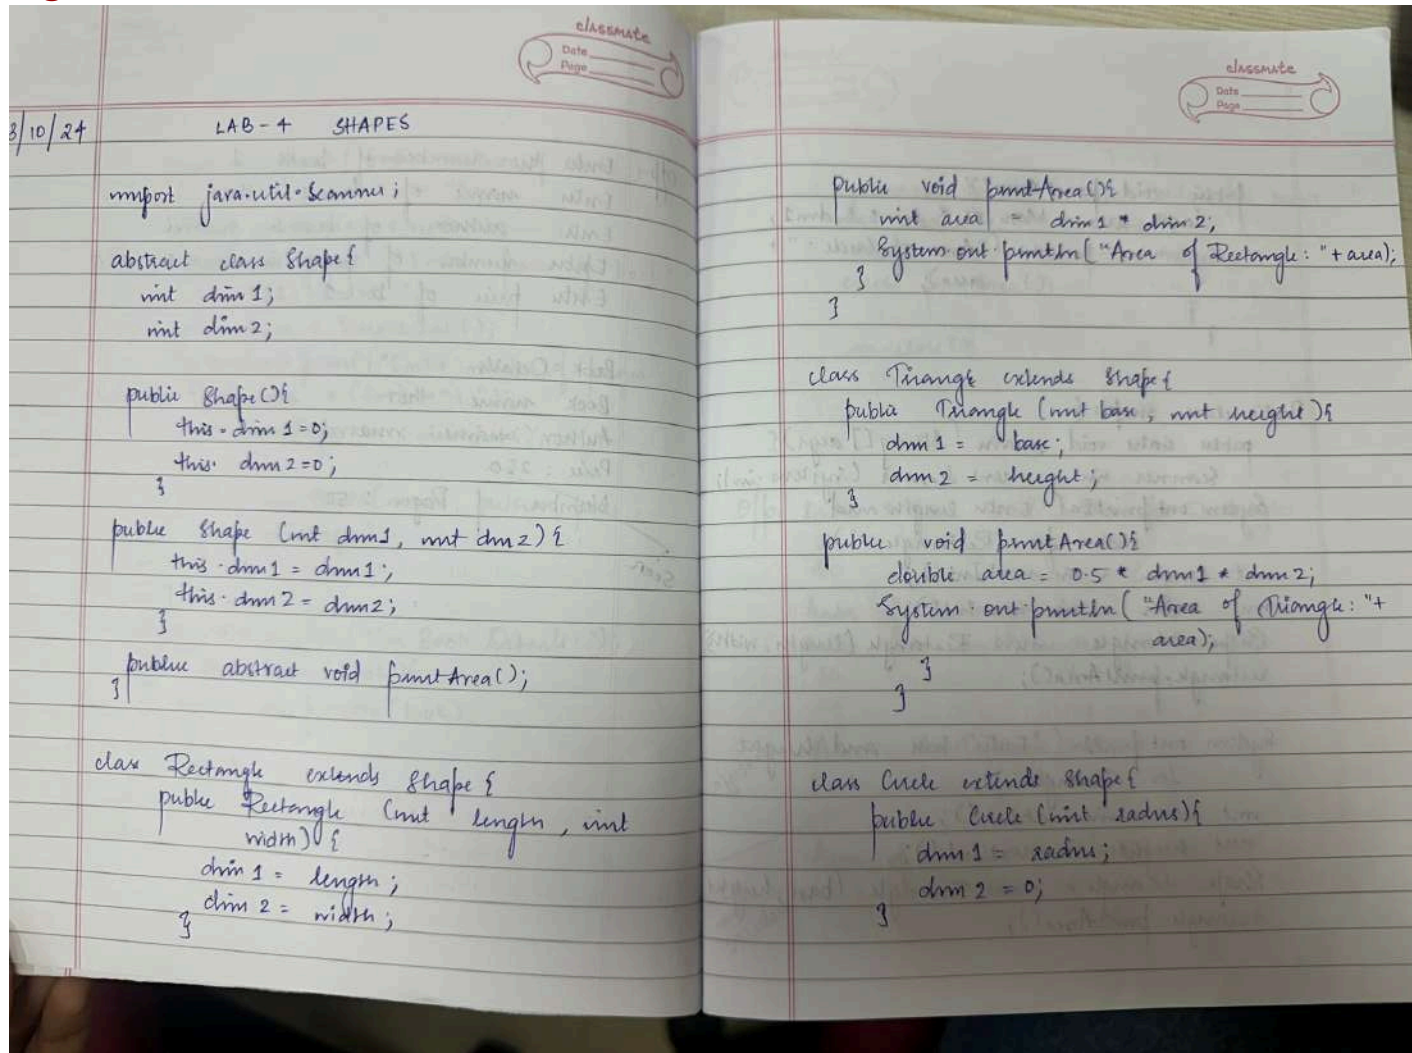 classmate
Date
Page
3/10/24
LAB-4 SHAPES
import java.util.Scanner;
abstract class Shape{
int dim1;
int dim2;
public Shape(){
this.dim1=0;
this.dim2=0;
}
public Shape (int dim1, int dim2){
this.dim1 = dim1;
this.dim2 = dim2;
}
public abstract void printArea();
}
class Rectangle extends Shape{
public Rectangle (int length, int
width){
dim1 = length;
dim2 = width;
}
classmate
Date
Page
public void printArea(){
int area = dim1 * dim2;
System.out.println("Area of Rectangle: "+area);
}
}
class Triangle extends Shape{
public Triangle (int base, int height){
dim1 = base;
dim2 = height;
}
public void printArea(){
double area = 0.5 * dim1 * dim2;
System.out.println("Area of Triangle: "+
area);
}
}
class Circle extends Shape{
public Circle (int radius){
dim1 = radius;
dim2 = 0;
}